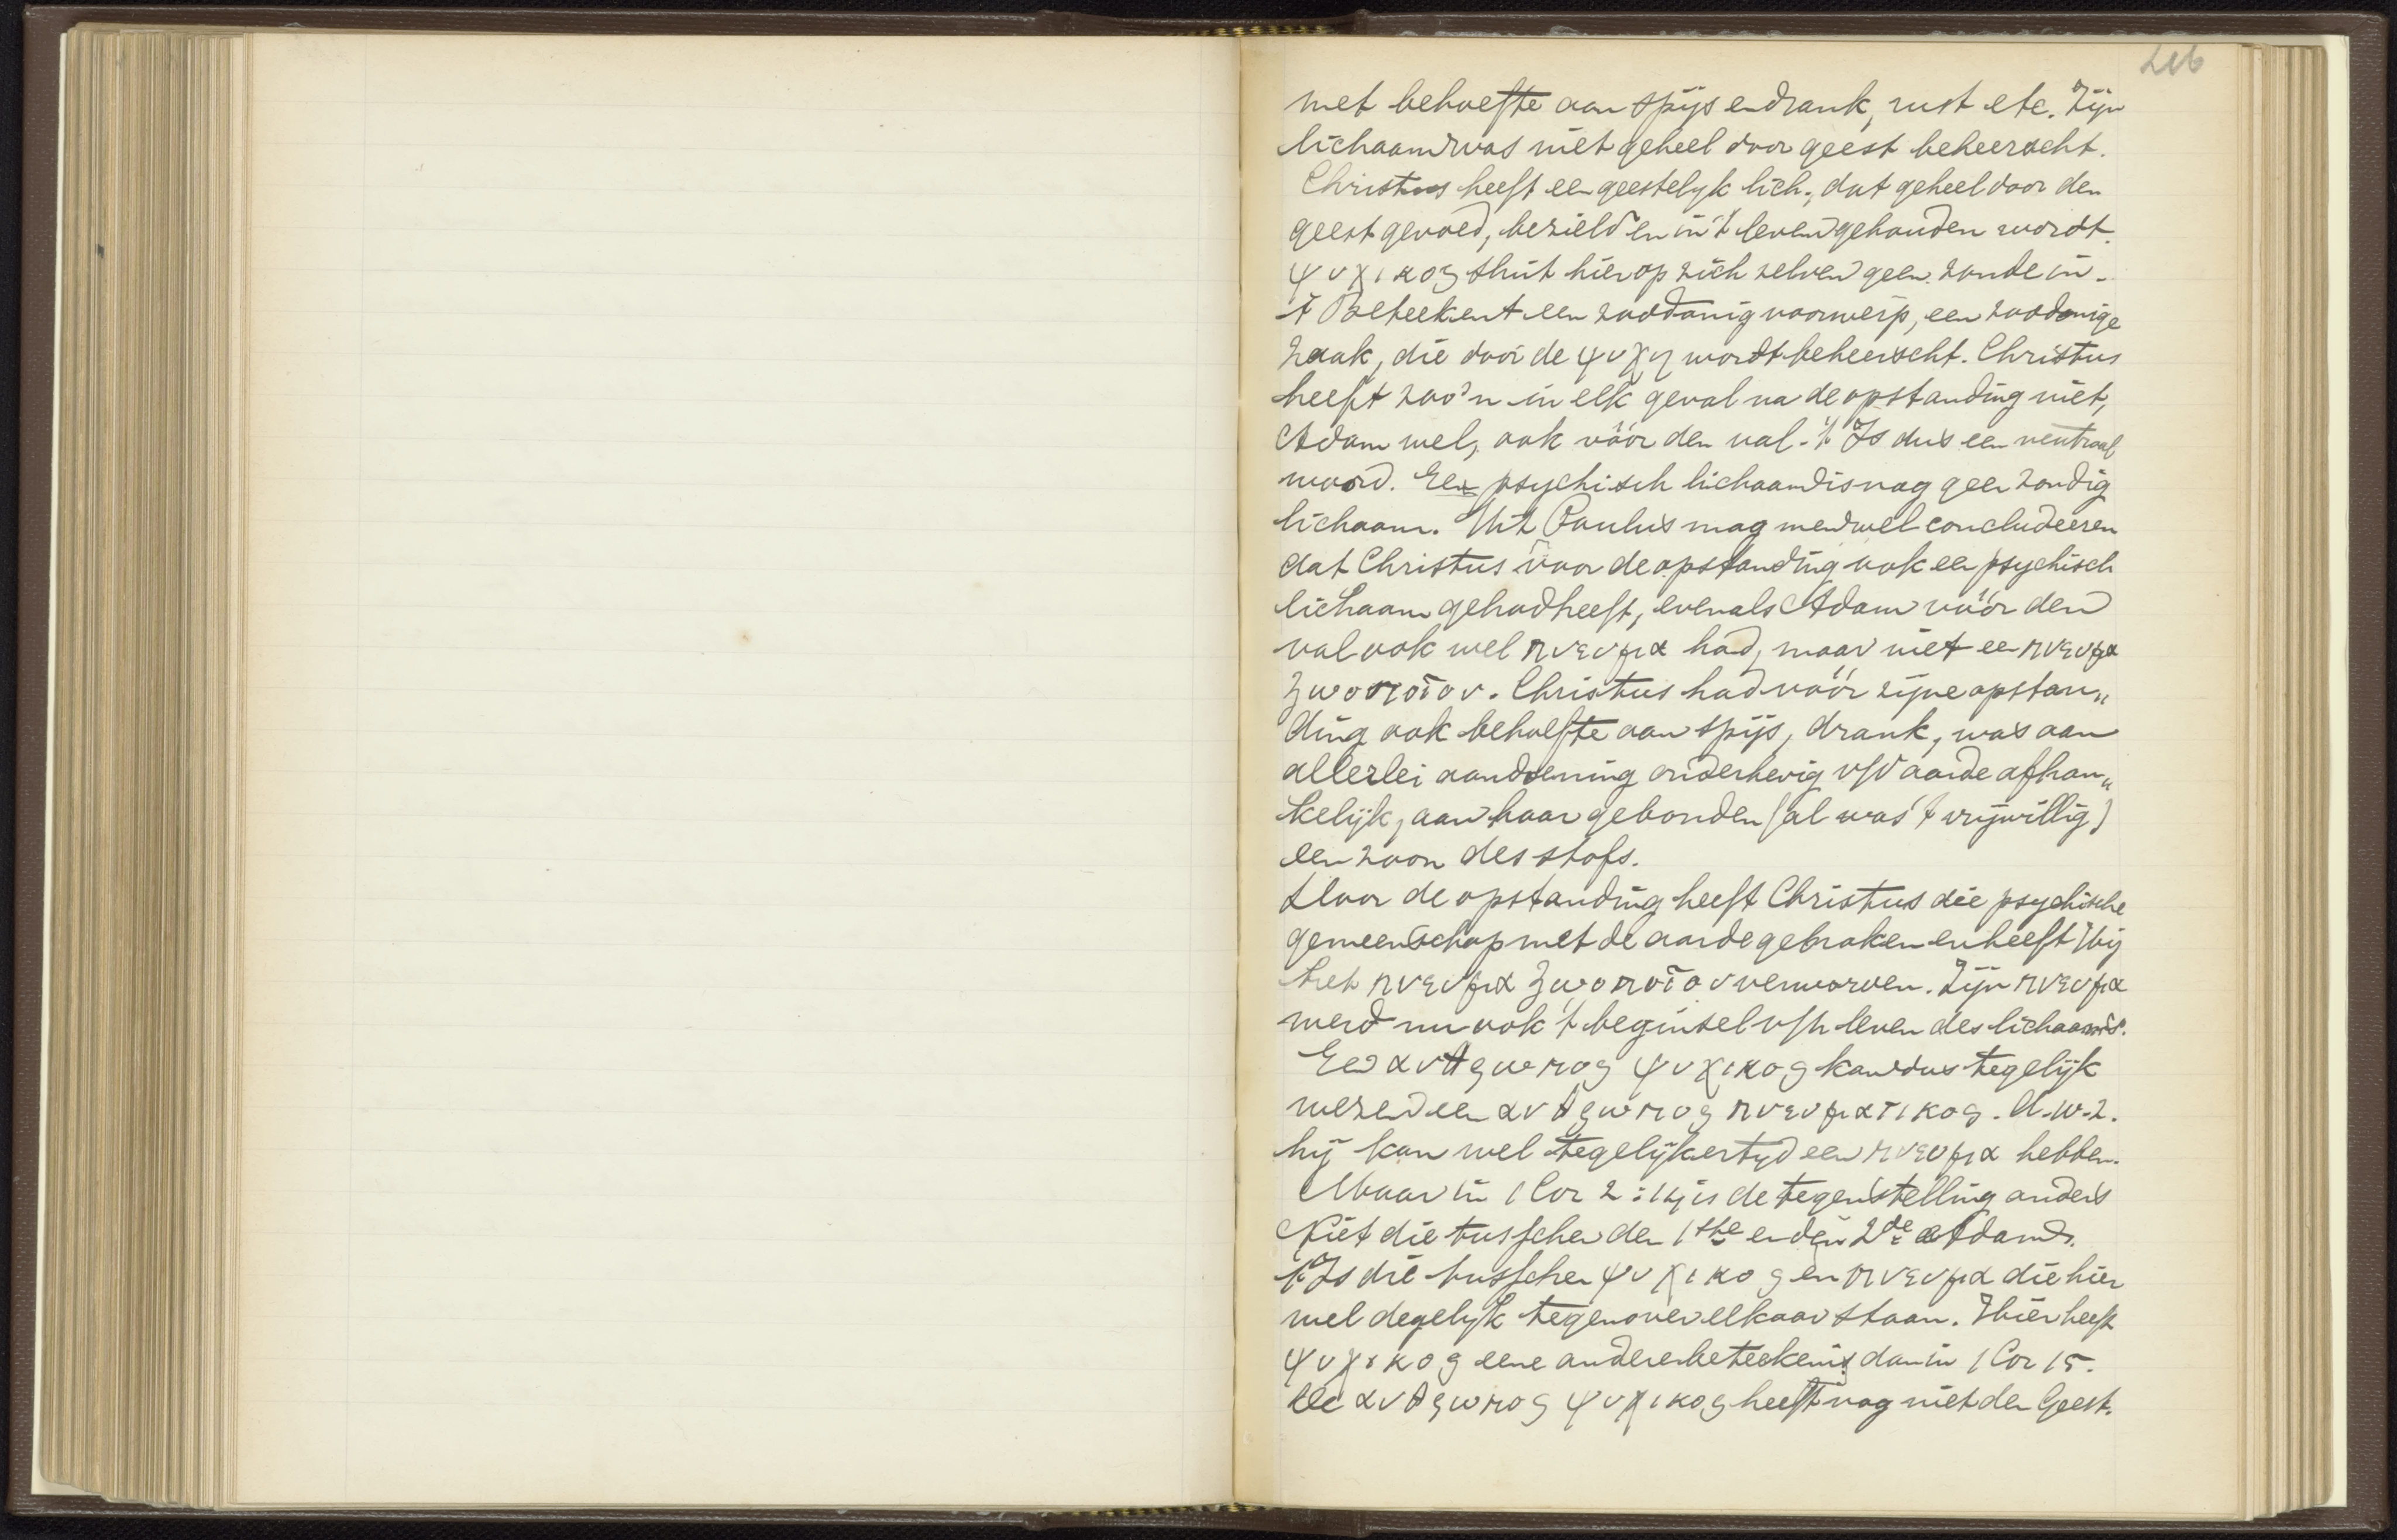 216
met behoefte aan spijs en drank, rust etc. Zijn
lichaam was niet geheel door geest beheerscht.
Christus heeft een geestelyk lich., dat geheel door den
geest gevoed, bezield en in 't leven gehouden wordt.
ψυχικος sluit hier op zich zelven geen zonde in.
't Beteekent een zoodanig voorwerp, een zoodanige
zaak, die door de ψυχη wordt beheerscht. Christus
heeft zoo'n in elk geval na de opstanding niet,
Adam wel, ook vóór den val. 't Is dus een neutraal
woord. Een psychisch lichaam is nog geen zondig
lichaam. Uit Paulus mag men wel concludeeren
dat Christus voor de opstanding ook een psychisch
lichaam gehad heeft, evenals Adam vóór den
val ook wel πνευμα had, maar niet een πνευμα
ζωοποιον. Christus had vóór zijne opstan„
ding ook behoefte aan spijs, drank, was aan
allerlei aandoening onderhevig v/d aarde afhan„
kelijk, aan haar gebonden (al was 't vrijwillig)
een zoon des stofs.
Door de opstanding heeft Christus die psychische
gemeenschap met de aarde gebroken en heeft Hij
het πνευμα ζωοποιον verworven. Zijn πνευμα
werd nu ook 't beginsel v/h leven des lichaams.
Een ανθρωπος ψυχικος kan dus tegelijk
wezen een ανθρωπος πνευματικος. d.w.z.
hij kan wel tegelijkertyd een πνευμα hebben.
Maar in 1 Cor 2:14 is de tegenstelling anders
Niet die tusschen den 1ste en den 2de Adam.
't Is die tusschen ψυχικος en πνευμα die hier
wel degelyk tegenover elkaar staan. Hier heeft
ψυχικος eene andere beteekenis dan in 1 Cor 15.
De ανθρωπος ψυχικος heeft nog niet den Geest.